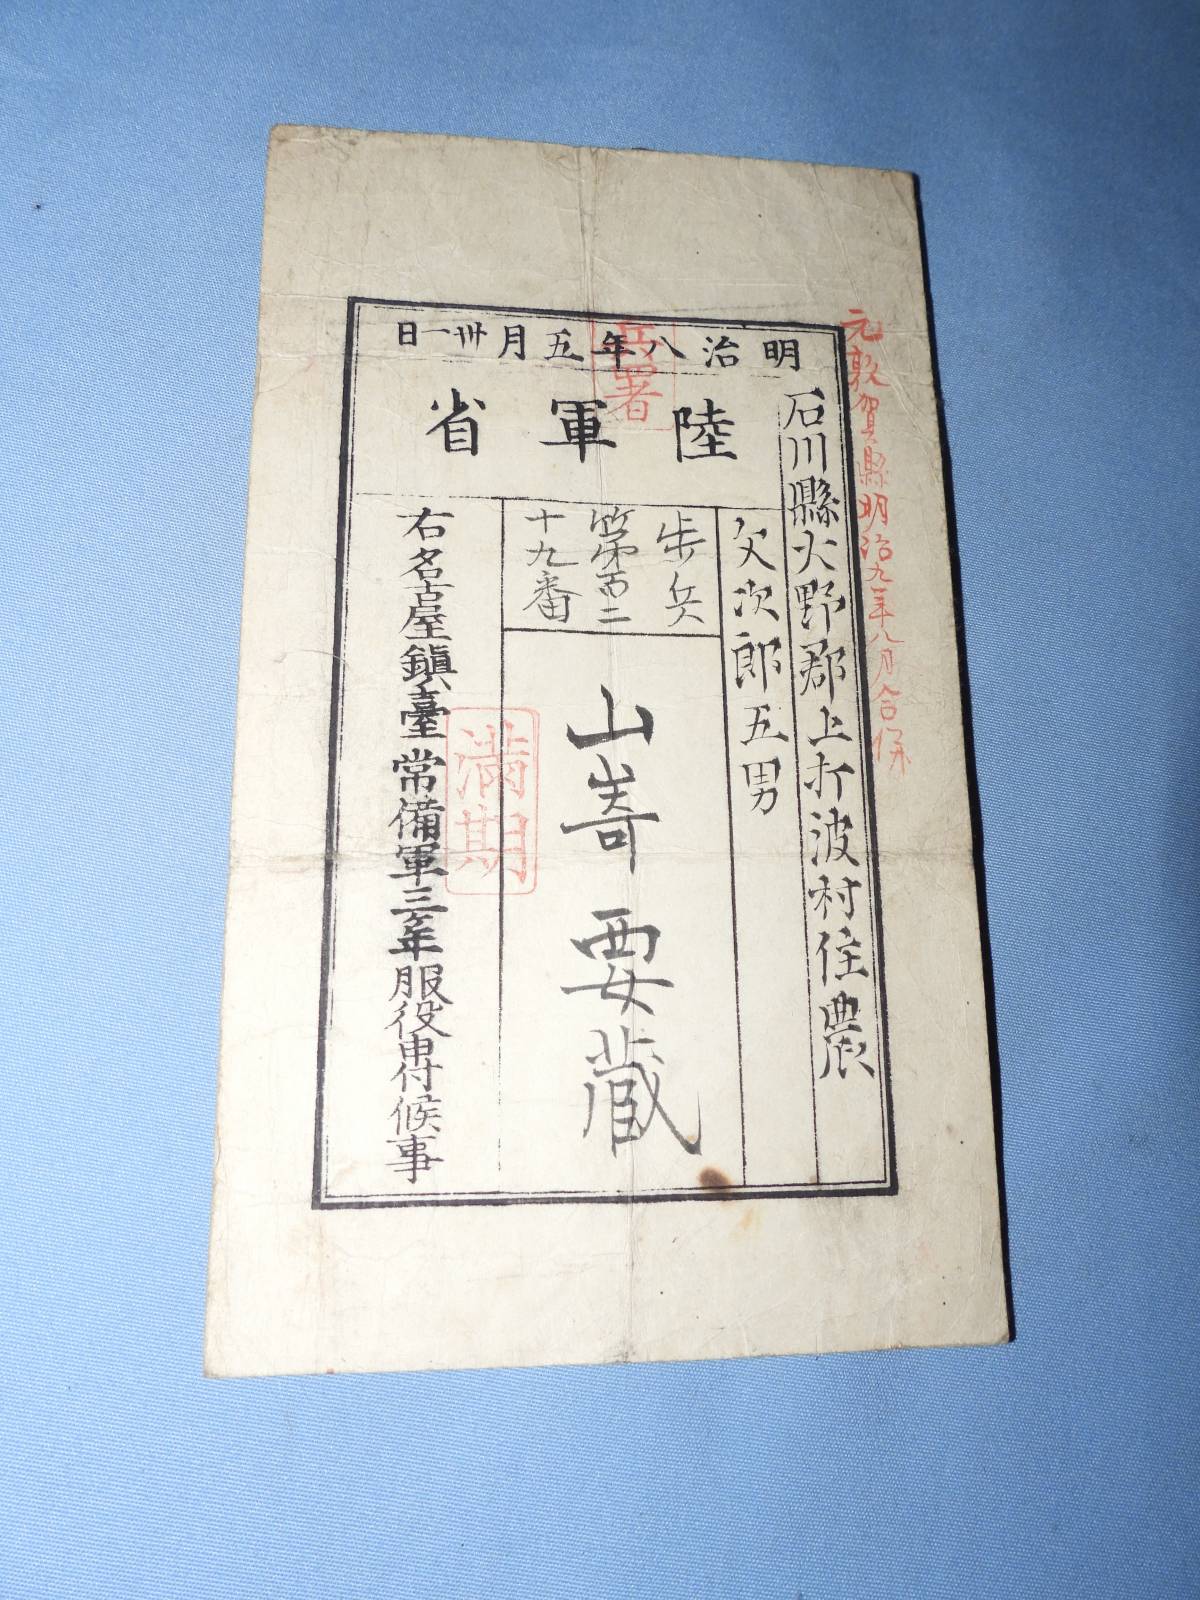 元敦賀縣明治九年八月合併
石川縣大野郡上打波村住農
父次郎五男
明治八年五月卅一日
陸軍省
歩兵
第百二
十九番
山嵜要蔵
右名古屋鎮臺常備軍三ケ年服役申付候事
満期
兵署